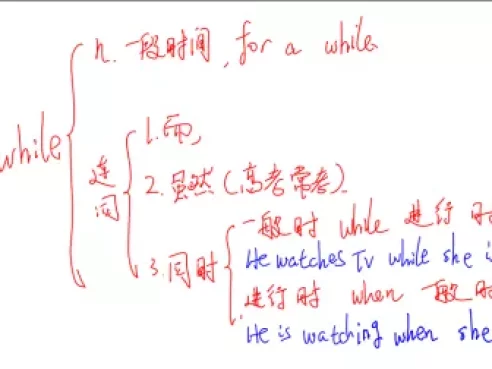 while
n. 一般时间, for a while
连词
1. 而,
2. 虽然(高考常考).
3. 同时
一般时 while 进行时
He watches TV while she i
进行时 when 一般时
He is watching when she